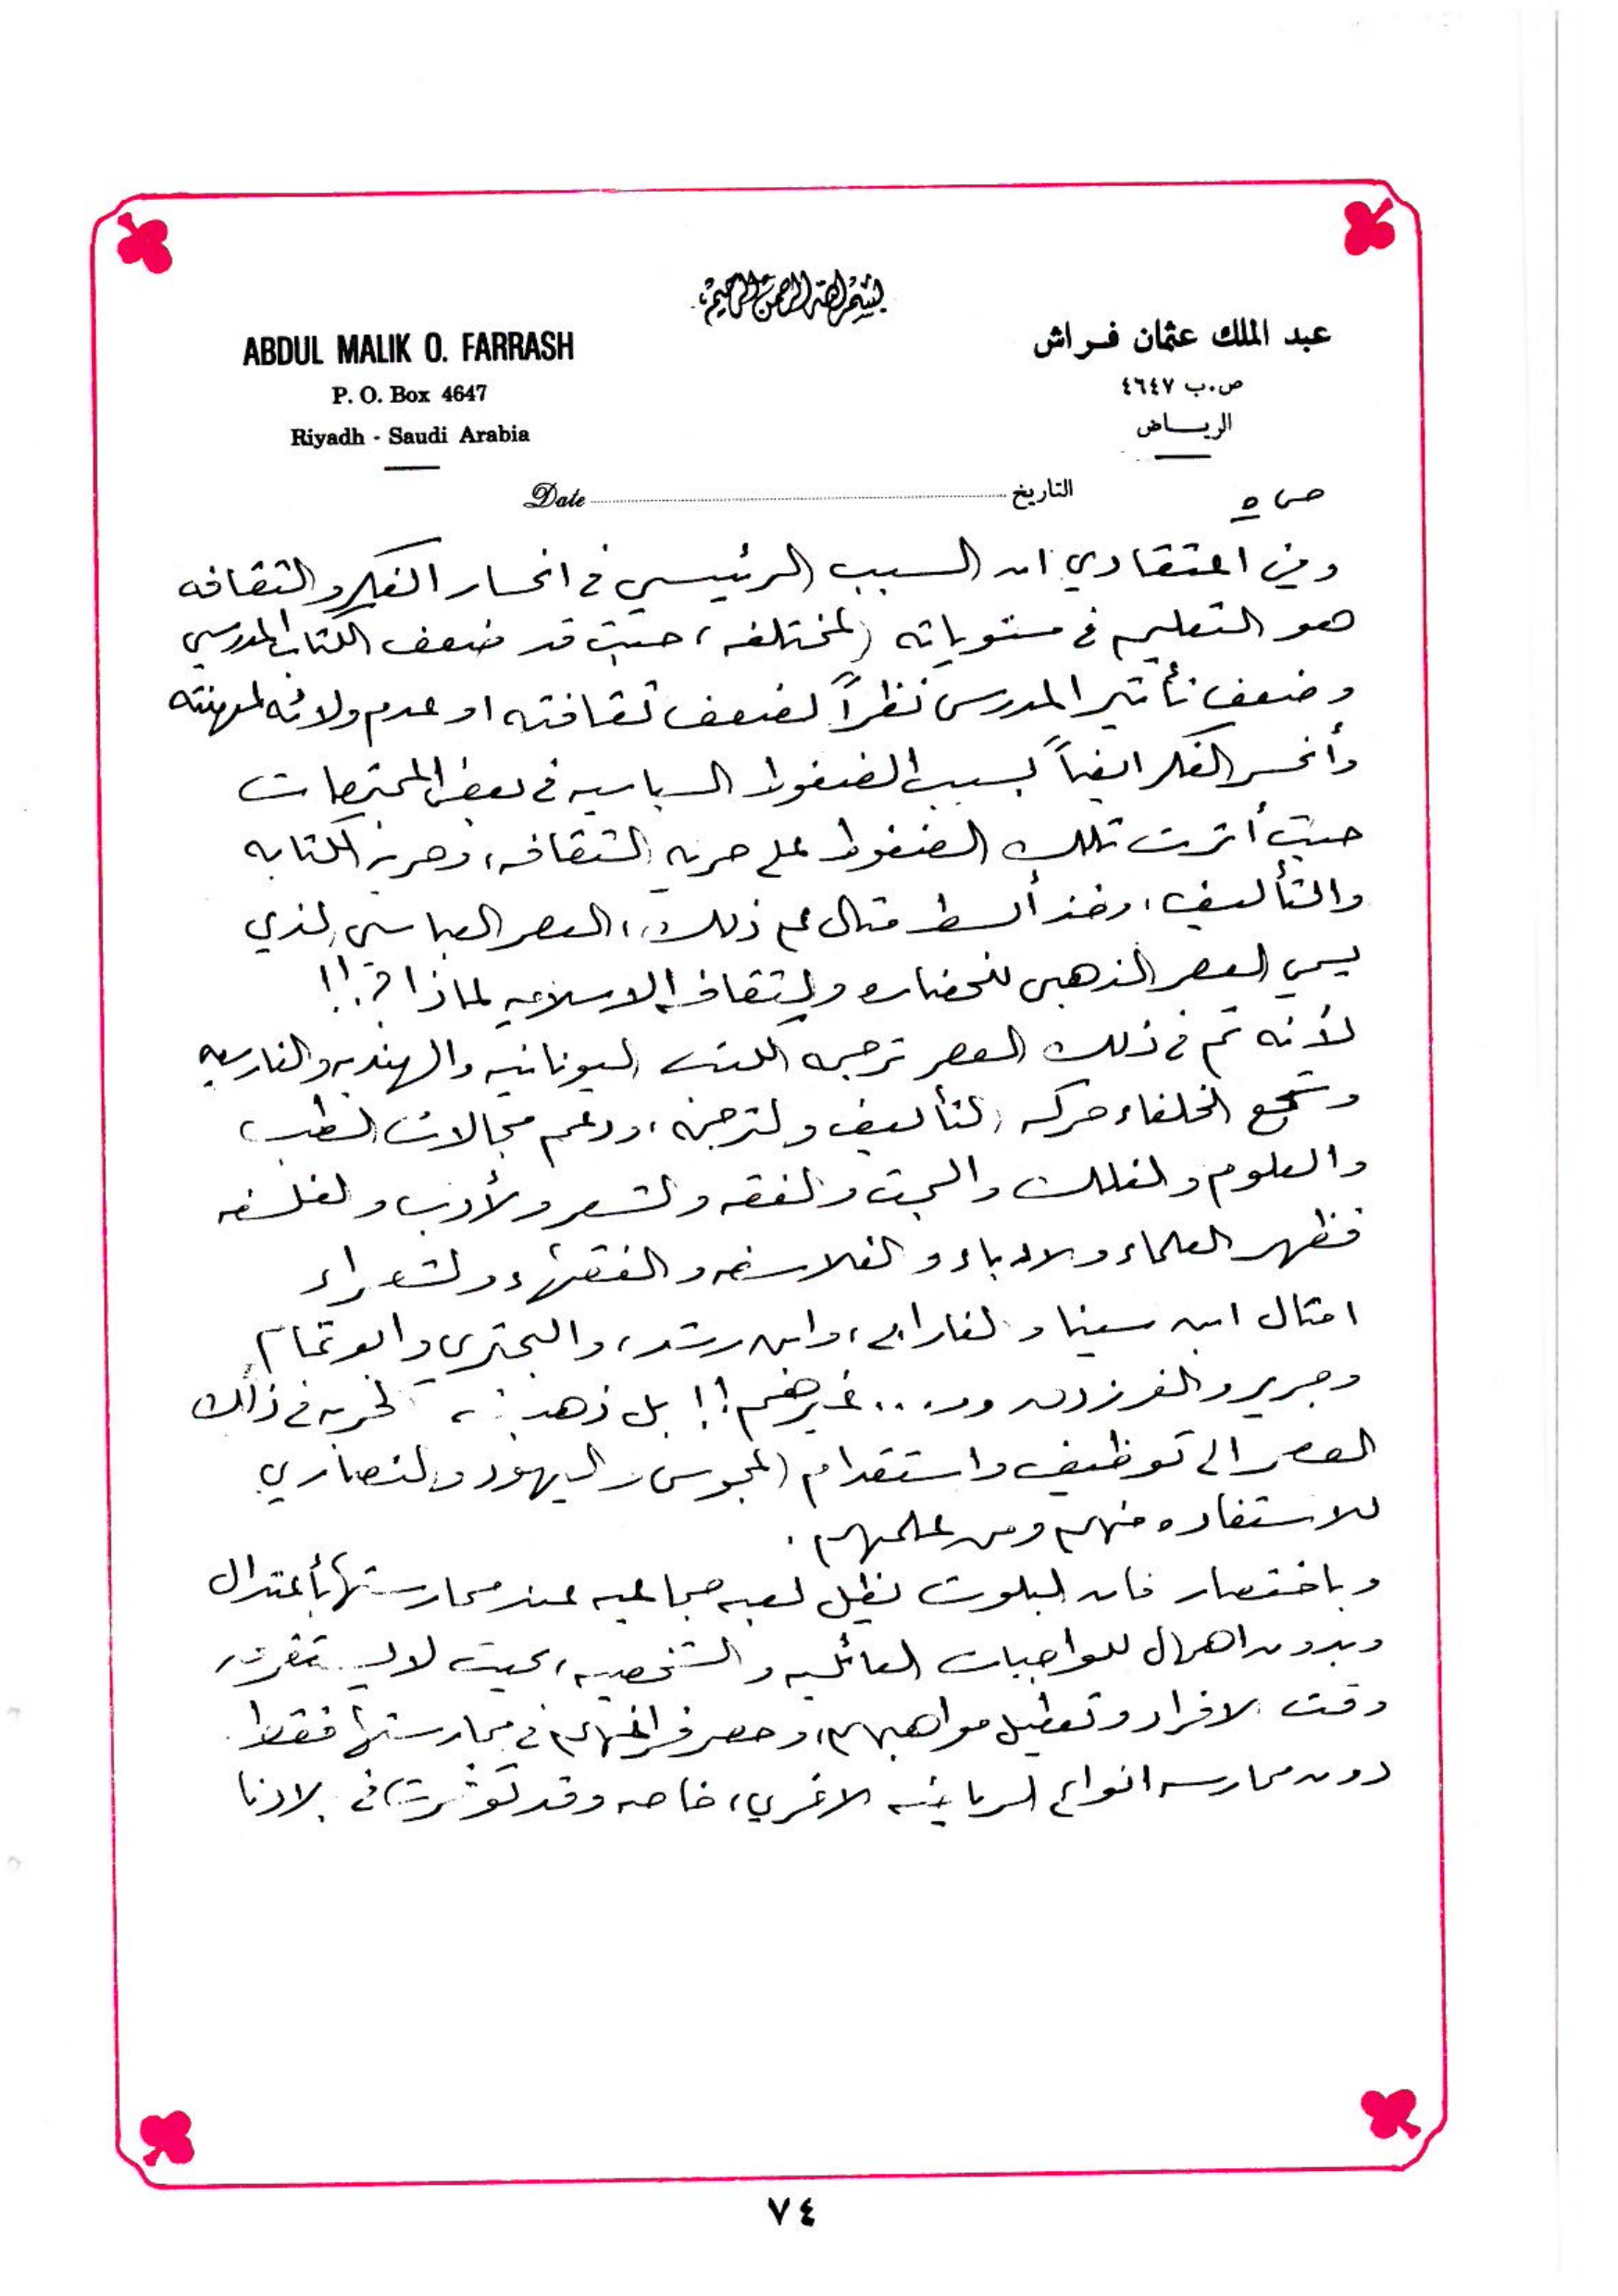 بسم الله الرحمن الرحيم
عبد الملك عثمان فراش
ص.ب ٤٦٤٧
الرياض
ABDUL MALIK O. FARRASH
P. O. Box 4647
Riyadh - Saudi Arabia
التاريخ ........ Date
ص ٥
وفي اعتقادي ان السبب الرئيسي في انحسار الفكر والثقافه
هو التعليم في مستوياته المختلفه، حيث قد ضعف الكتاب المدرسي
وضعف تأثير المدرس نظراً لضعف ثقافته او عدم ولائه لمهنته
وأنحسر الفكر ايضاً بسبب الضغوط السياسيه في بعض المجتمعات
حيث أثرت تلك الضغوط على حريه الثقافه، وحريه الكتابه
والتأليف، وخذ أبسط مثال على ذلك، العصر العباسي الذي
يسمي العصر الذهبي للحضاره والثقافه الاسلاميه لماذا ؟!!
لأنه تم في ذلك العصر ترجمه الكتب اليونانيه والهنديه والفارسيه
وشجع الخلفاء حركه التأليف والترجمه، ودعم مجالات الطب،
والعلوم والفلك والبحث والفقه والشعر والأدب والفلسفه
فظهر العلماء والادباء والفلاسفه والفقهاء والشعراء
امثال ابن سينا والفارابي، وابن رشد، والبحتري وابو تمام
وجرير والفرزدق و... غيرهم!! بل ذهبت الحريه في ذلك
العصر الى توظيف واستقدام المجوس واليهود والنصاري
للاستفاده منهم ومن علمهم.
وباختصار فان البلوت يظل لعبه جماعيه عند ممارستها بأعتدال
وبدون اهمال للواجبات العائليه والشخصيه، بحيث لا يستغرق
وقت الافراد وتعطيل مواهبهم، وحصر فراغهم في ممارستها فقط
دون ممارسه انواع الرياضه الاخري، خاصه وقد توفرت في بلادنا
٧٤